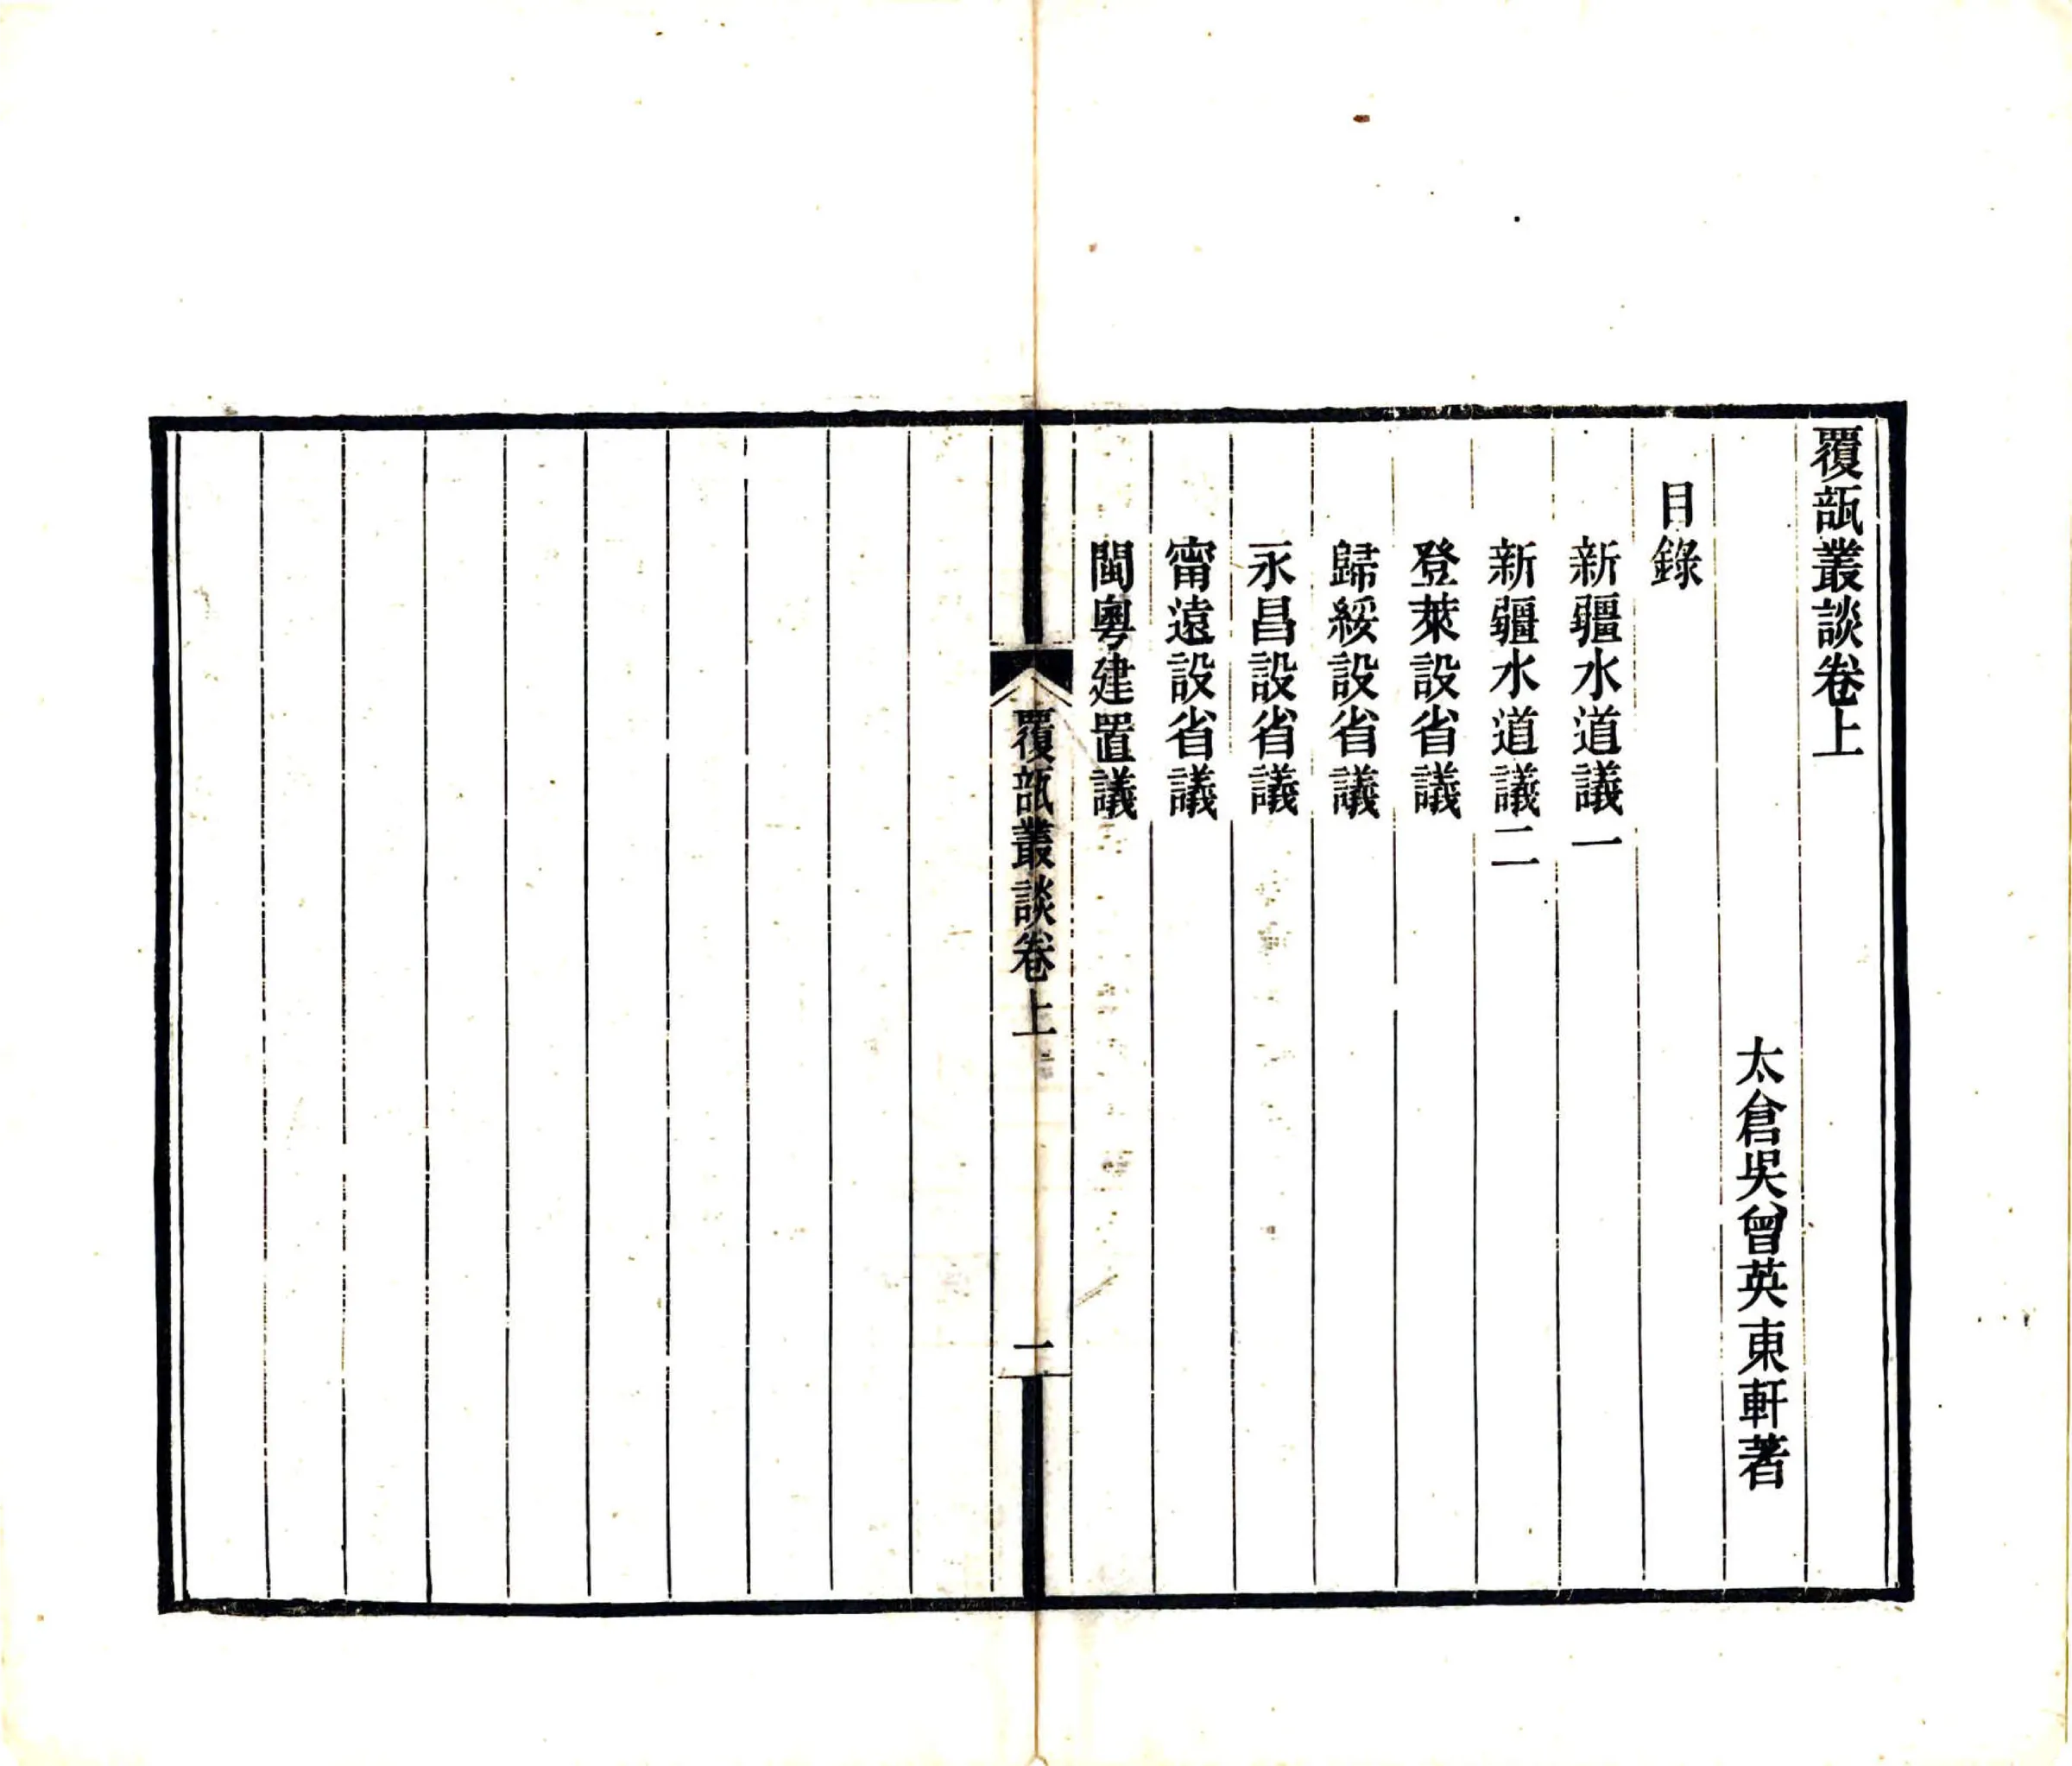 覆瓿叢談卷上
太倉吳曾英東軒著
目錄
新疆水道議一
新疆水道議二
登萊設省議
歸綏設省議
永昌設省議
甯遠設省議
閩粵建置議
覆瓿叢談卷上
一